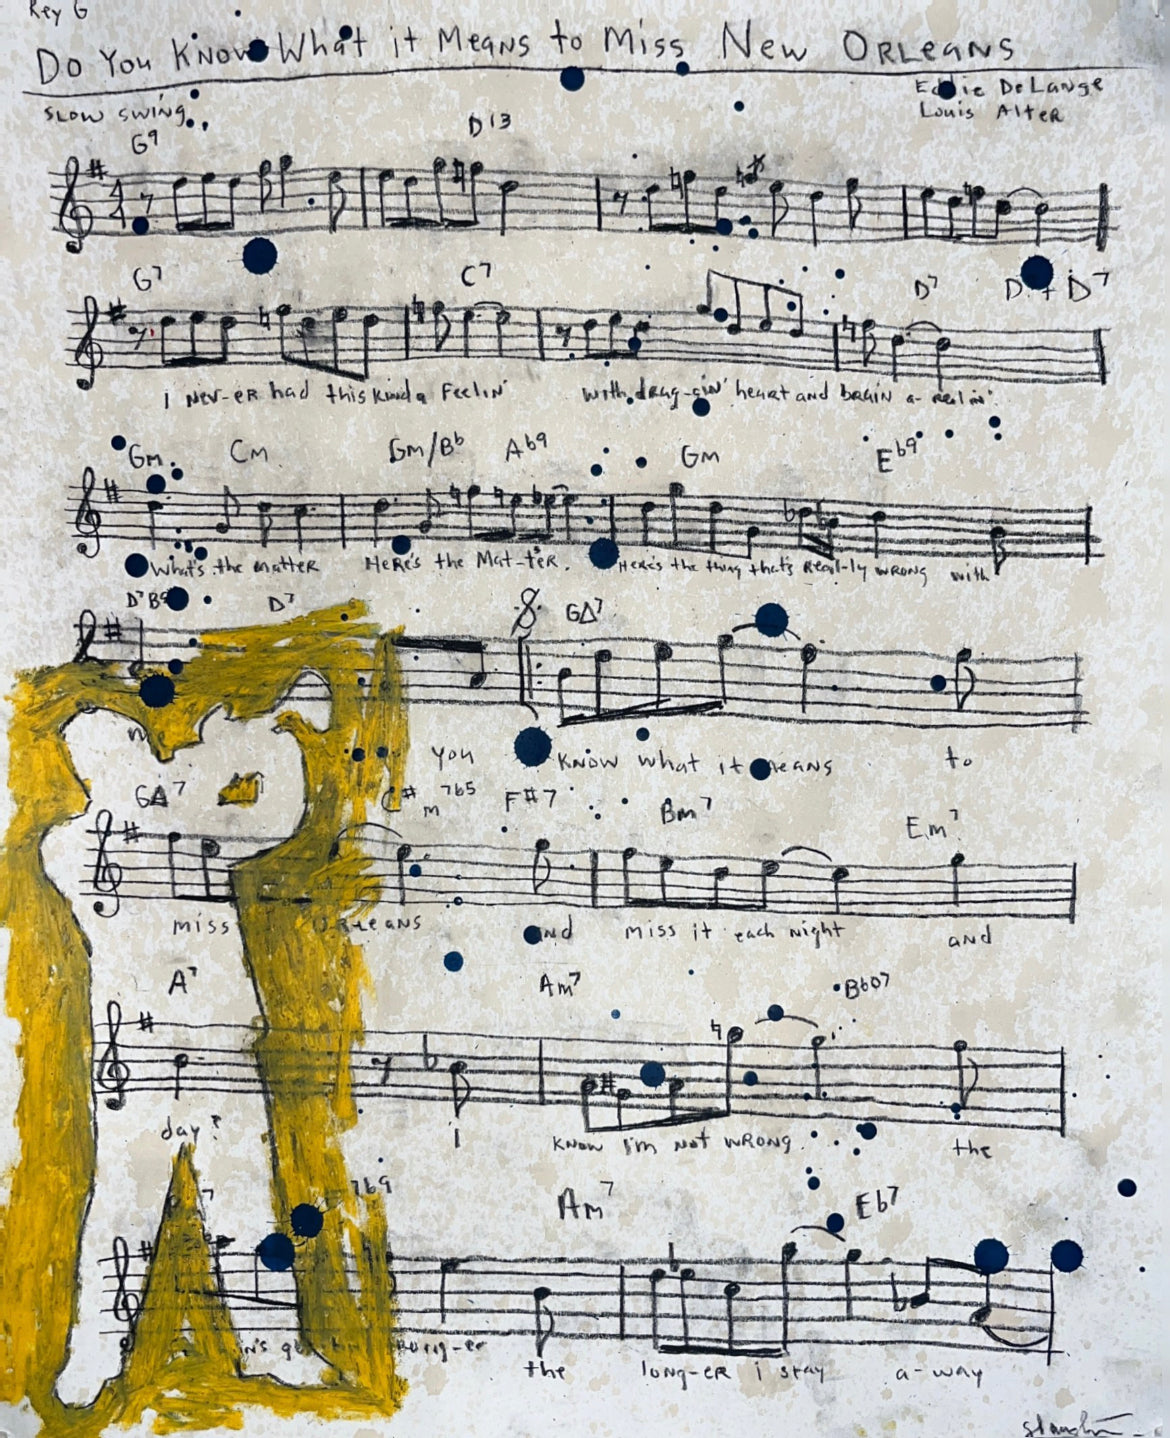 Key G
Do You Know What it Means to Miss New Orleans
Eddie DeLange
Slow swing
Louis Alter
G9 D13
4/4
G7 C7 D7 D+ D7
I nev-er had this kinda feelin' with drag-gin' heart and brain a-reelin'
Gm Cm Gm/Bb Ab9 Gm Eb9
What's the matter Here's the Mat-ter. Here's the thing that's Real-ly wrong with
D7 B9 D7 G∆7
You know what it means to
G∆7 C# m7b5 F#7 Bm7 Em7
miss Orleans and miss it each night and
A7 Am7 Bbo7
day? I know I'm not wrong. the
7 7b9 Am7 Eb7
the long-er i stay a-way